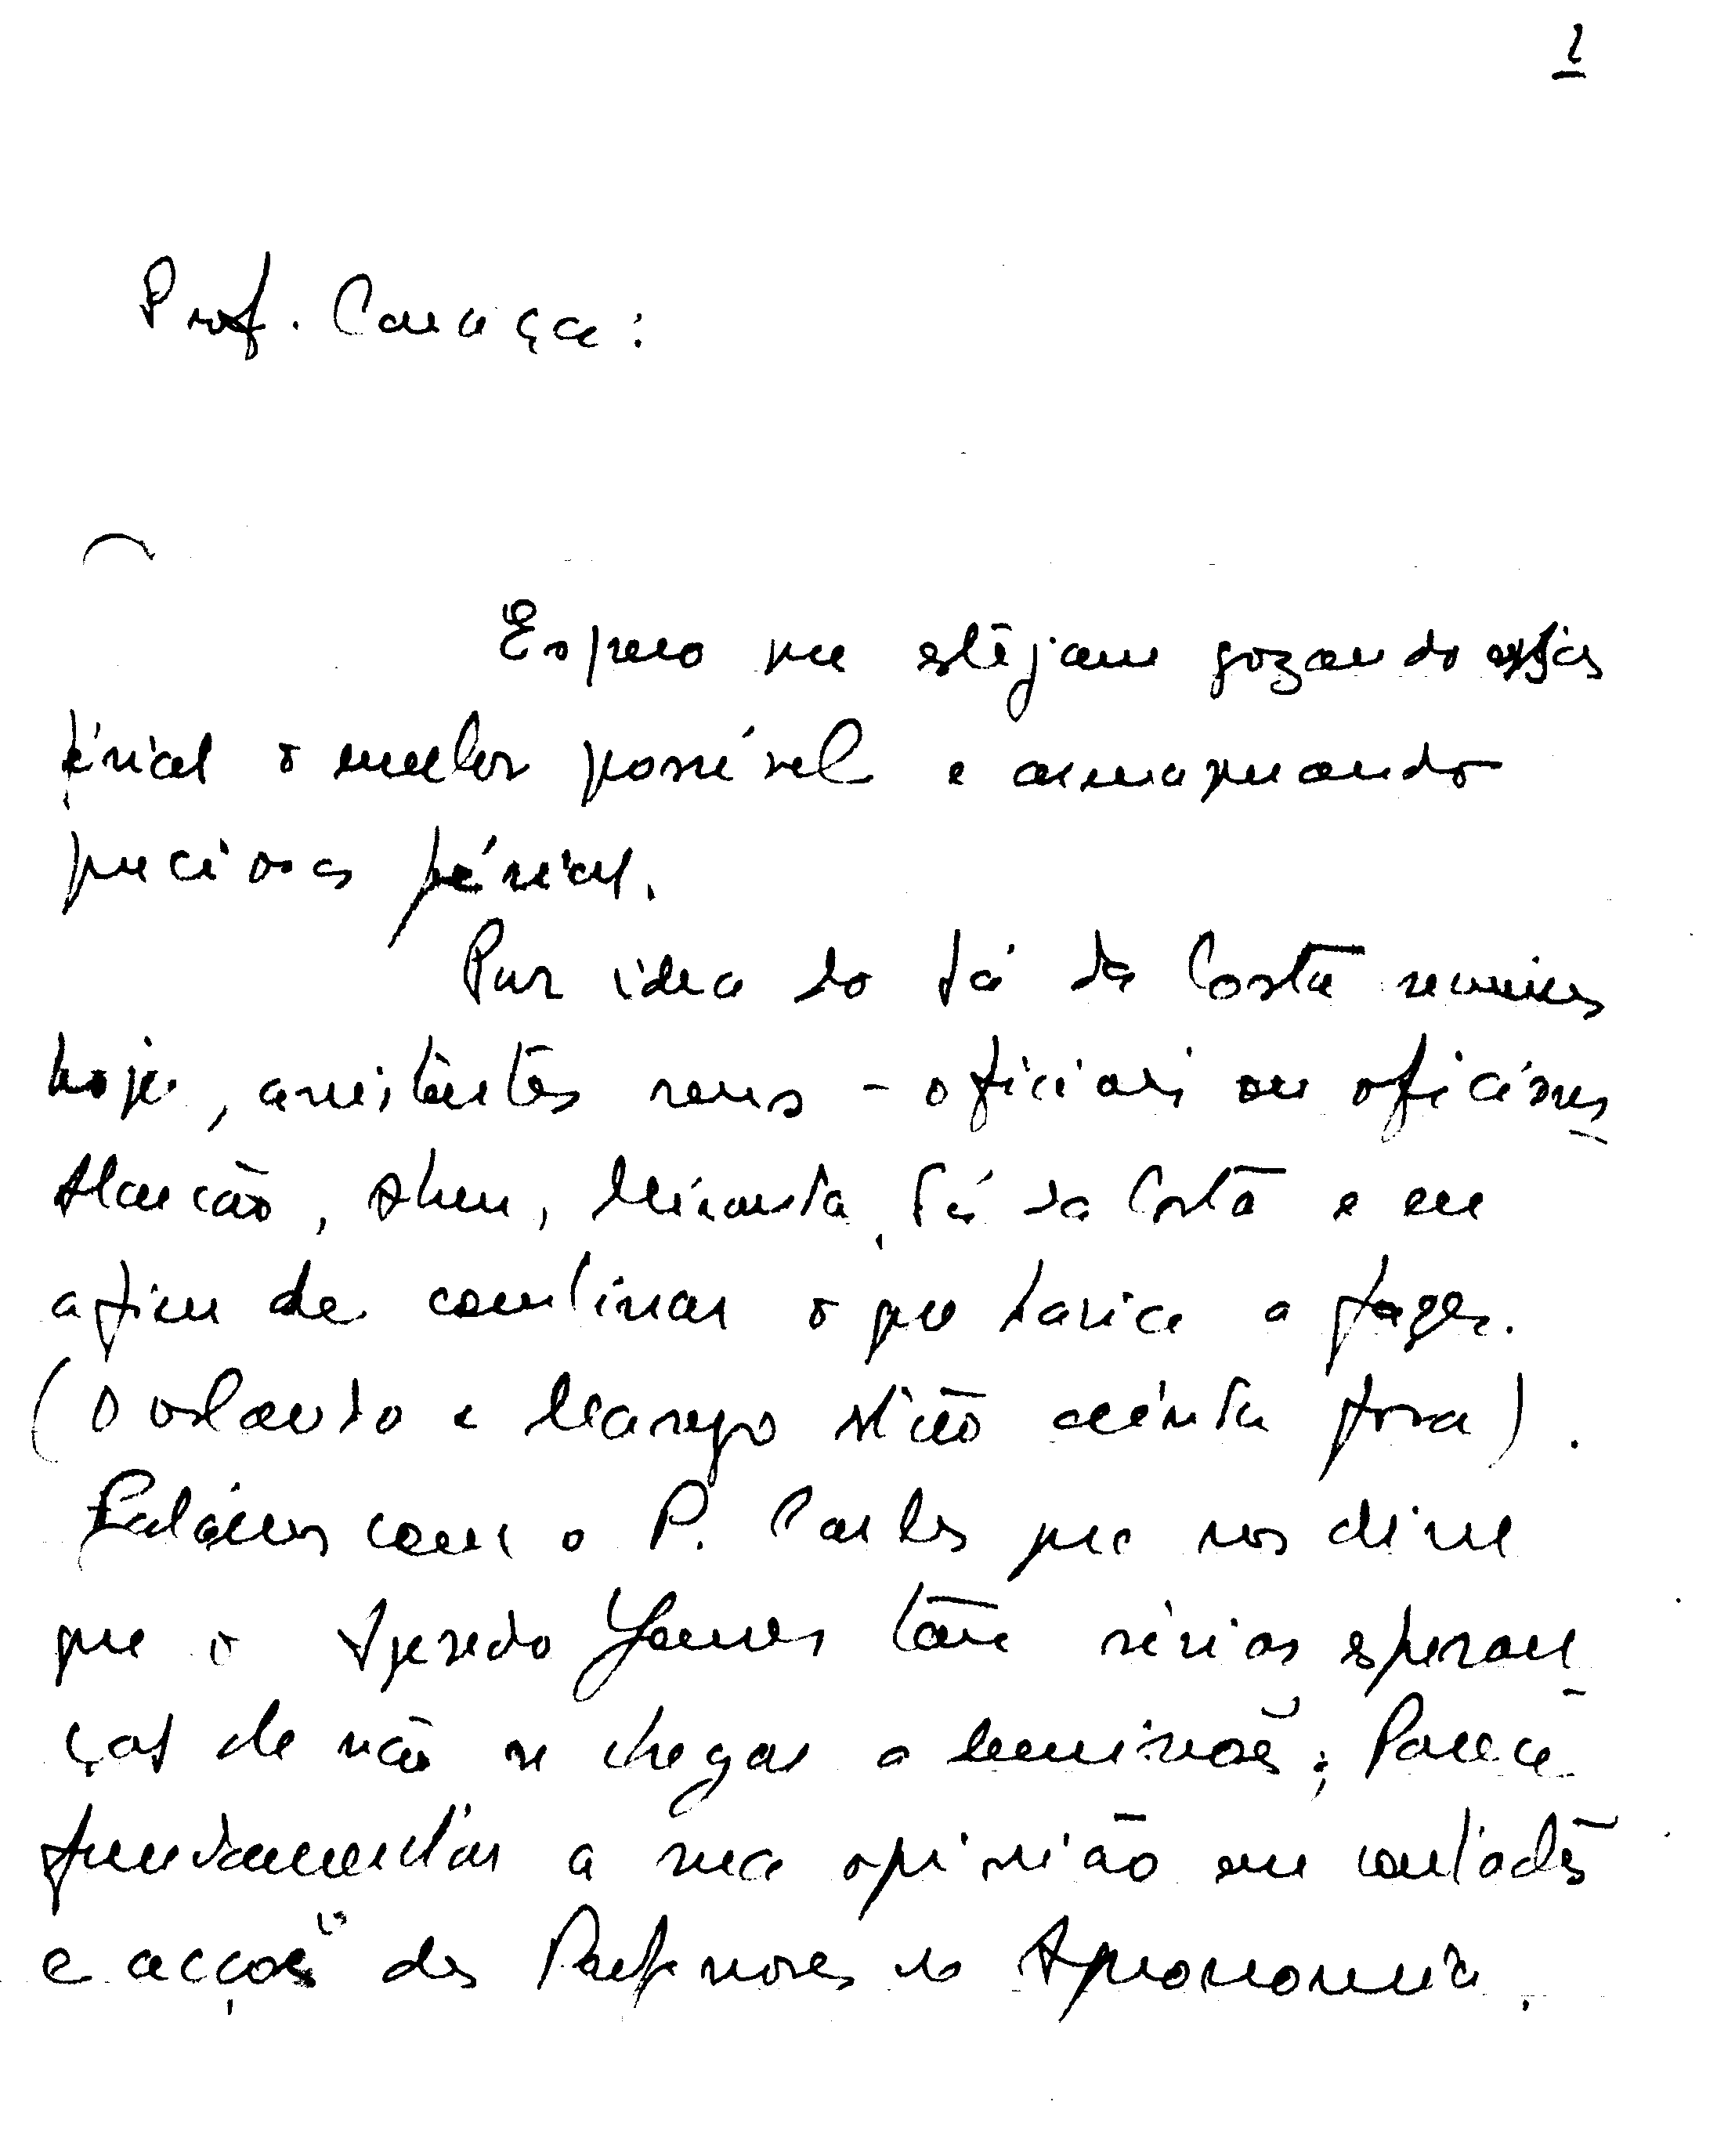 2
Prof. Caraça:
Espero que estejam gozando essas
férias o melhor possível e armazenando
preciosas férias.
Por idea do Sá da Costa reunimos
hoje, assistentes seus - oficiais ou oficiosos
Alarcão, Abreu, Miranda, Sá da Costa e eu
afim de combinar o que havia a fazer.
(Orlando e Margo estão ainda fora).
Falámos com o P. Carlos que nos disse
que o Azevedo Gomes tem sérias esperan
ças de não se chegar a demissão; Parece
fundamentar a sua opinião em contactos
e acções dos Professores de Agronomia.